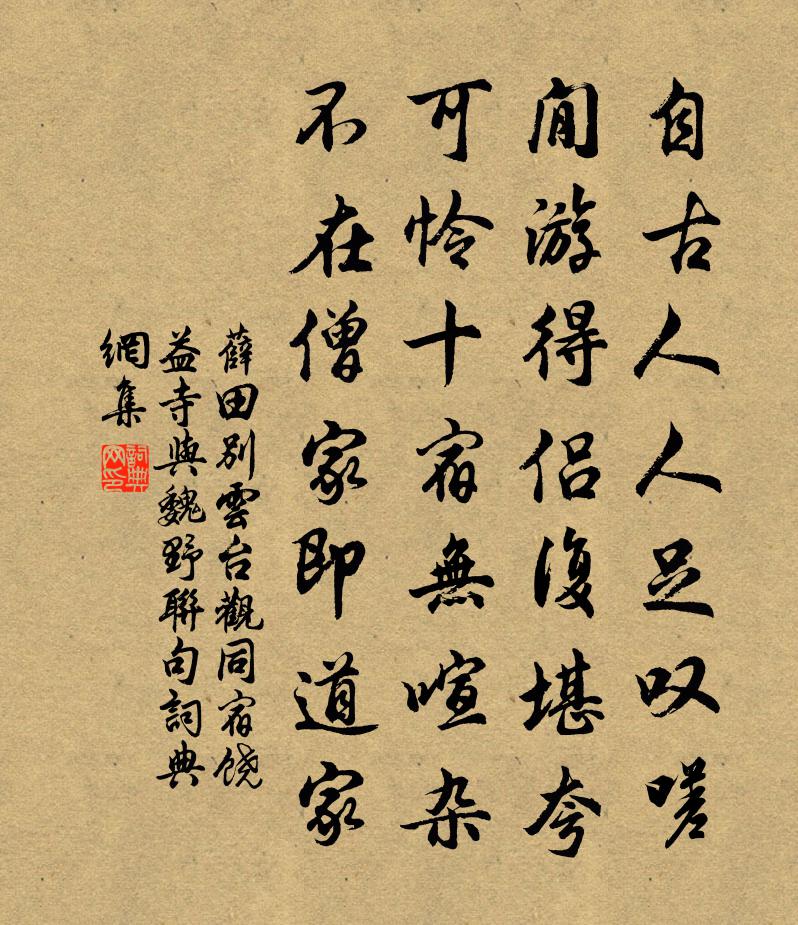 自古人人足叹嗟
閒游得侣復堪夸
可怜十宿無喧杂
不在僧家即道家
薛田别雲台觀同宿饶
益寺與魏野聯句詞典
網集
詞典网印